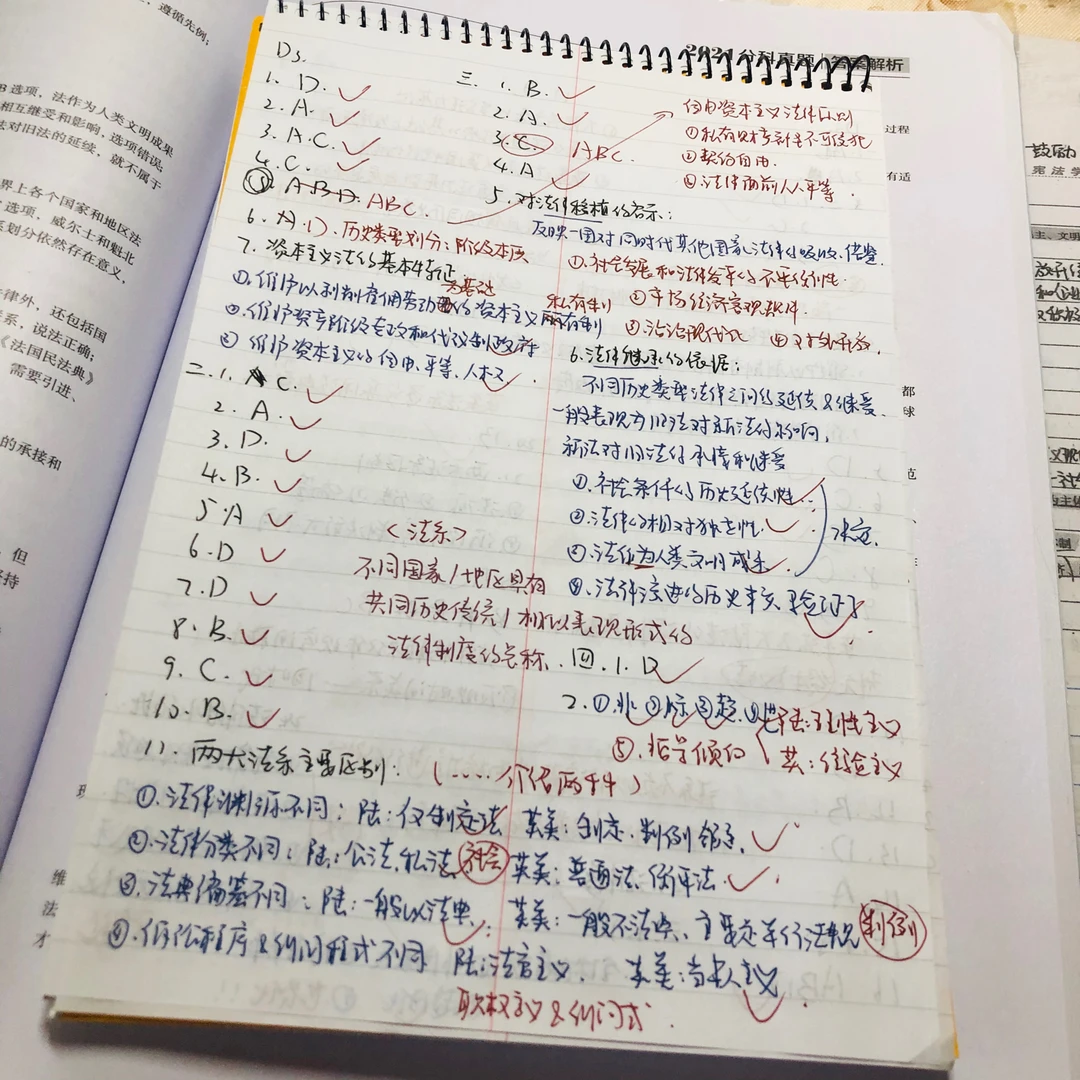 D3.
1. D.
2. A.
3. A.C.
4. C.
⑤ A.B.D. ABC.
6. A. D. 历史类型划分:阶级本质
7. 资本主义法的基本特征:
为基础
①.维护以剥削雇佣劳动的资本主义私有制
②.维护资产阶级专政和代议制政府
③ 维护资本主义的自由、平等、人权
二. 1. C.
2. A.
3. D.
4. B.
5. A
6. D
7. D
8. B.
9. C.
10. B.
<法系>
不同国家/地区具有
共同历史传统/相似表现形式的
法律制度的总称.
11. 两大法系主要区别:
①.法律渊源不同:陆:仅制定法 英美:制定、判例都是.
②.法律分类不同:陆:公法,私法,社会 英美:普通法、衡平法.
③.法典编纂不同:陆:一般以法典. 英美:一般不法典、主要是单行法 判例
④.诉讼程序&判问程式不同 陆:法官主义. 英美:当事人主义
职权主义&纠问式.
三 1. B.
2. A.
3. C. ABC.
4. A
自由资本主义法律
①私有财产神圣不可侵犯
②契约自由.
③法律面前人人平等.
5. 对法律移植的启示:
反映一国对同时代其他国家法律的吸收、借鉴
①.社会发展和法律发展的不平衡性.
②市场经济客观规律.
③法治现代化 ④对外开放.
6. 法律继承的依据:
不同历史类型法律之间的延续&继受.
一般表现为旧法对新法的影响,
新法对旧法的承接和继受
①.社会条件的历史延续性.
②.法律的相对独立性. 决定.
③.法作为人类文明成果.
④.法律演进的历史事实 验证了.
四. 1. D
2. ①.北②际③趋.④ 陆:理性主义
⑤.哲学倾向 英:经验主义
(……介绍两种)
2021分科真题 | 答案解析
,遵循先例;
B选项,法作为人类文明成果
相互继受和影响,选项错误;
法对旧法的延续,就不属于
界上各个国家和地区法
选项,威尔士和魁北
系划分依然存在意义,
律外,还包括国
系,说法正确;
《法国民法典》
需要引进、
的承接和
但
坚持
维
法
才
过程
有适
都
球
范
鼓励
宪法学